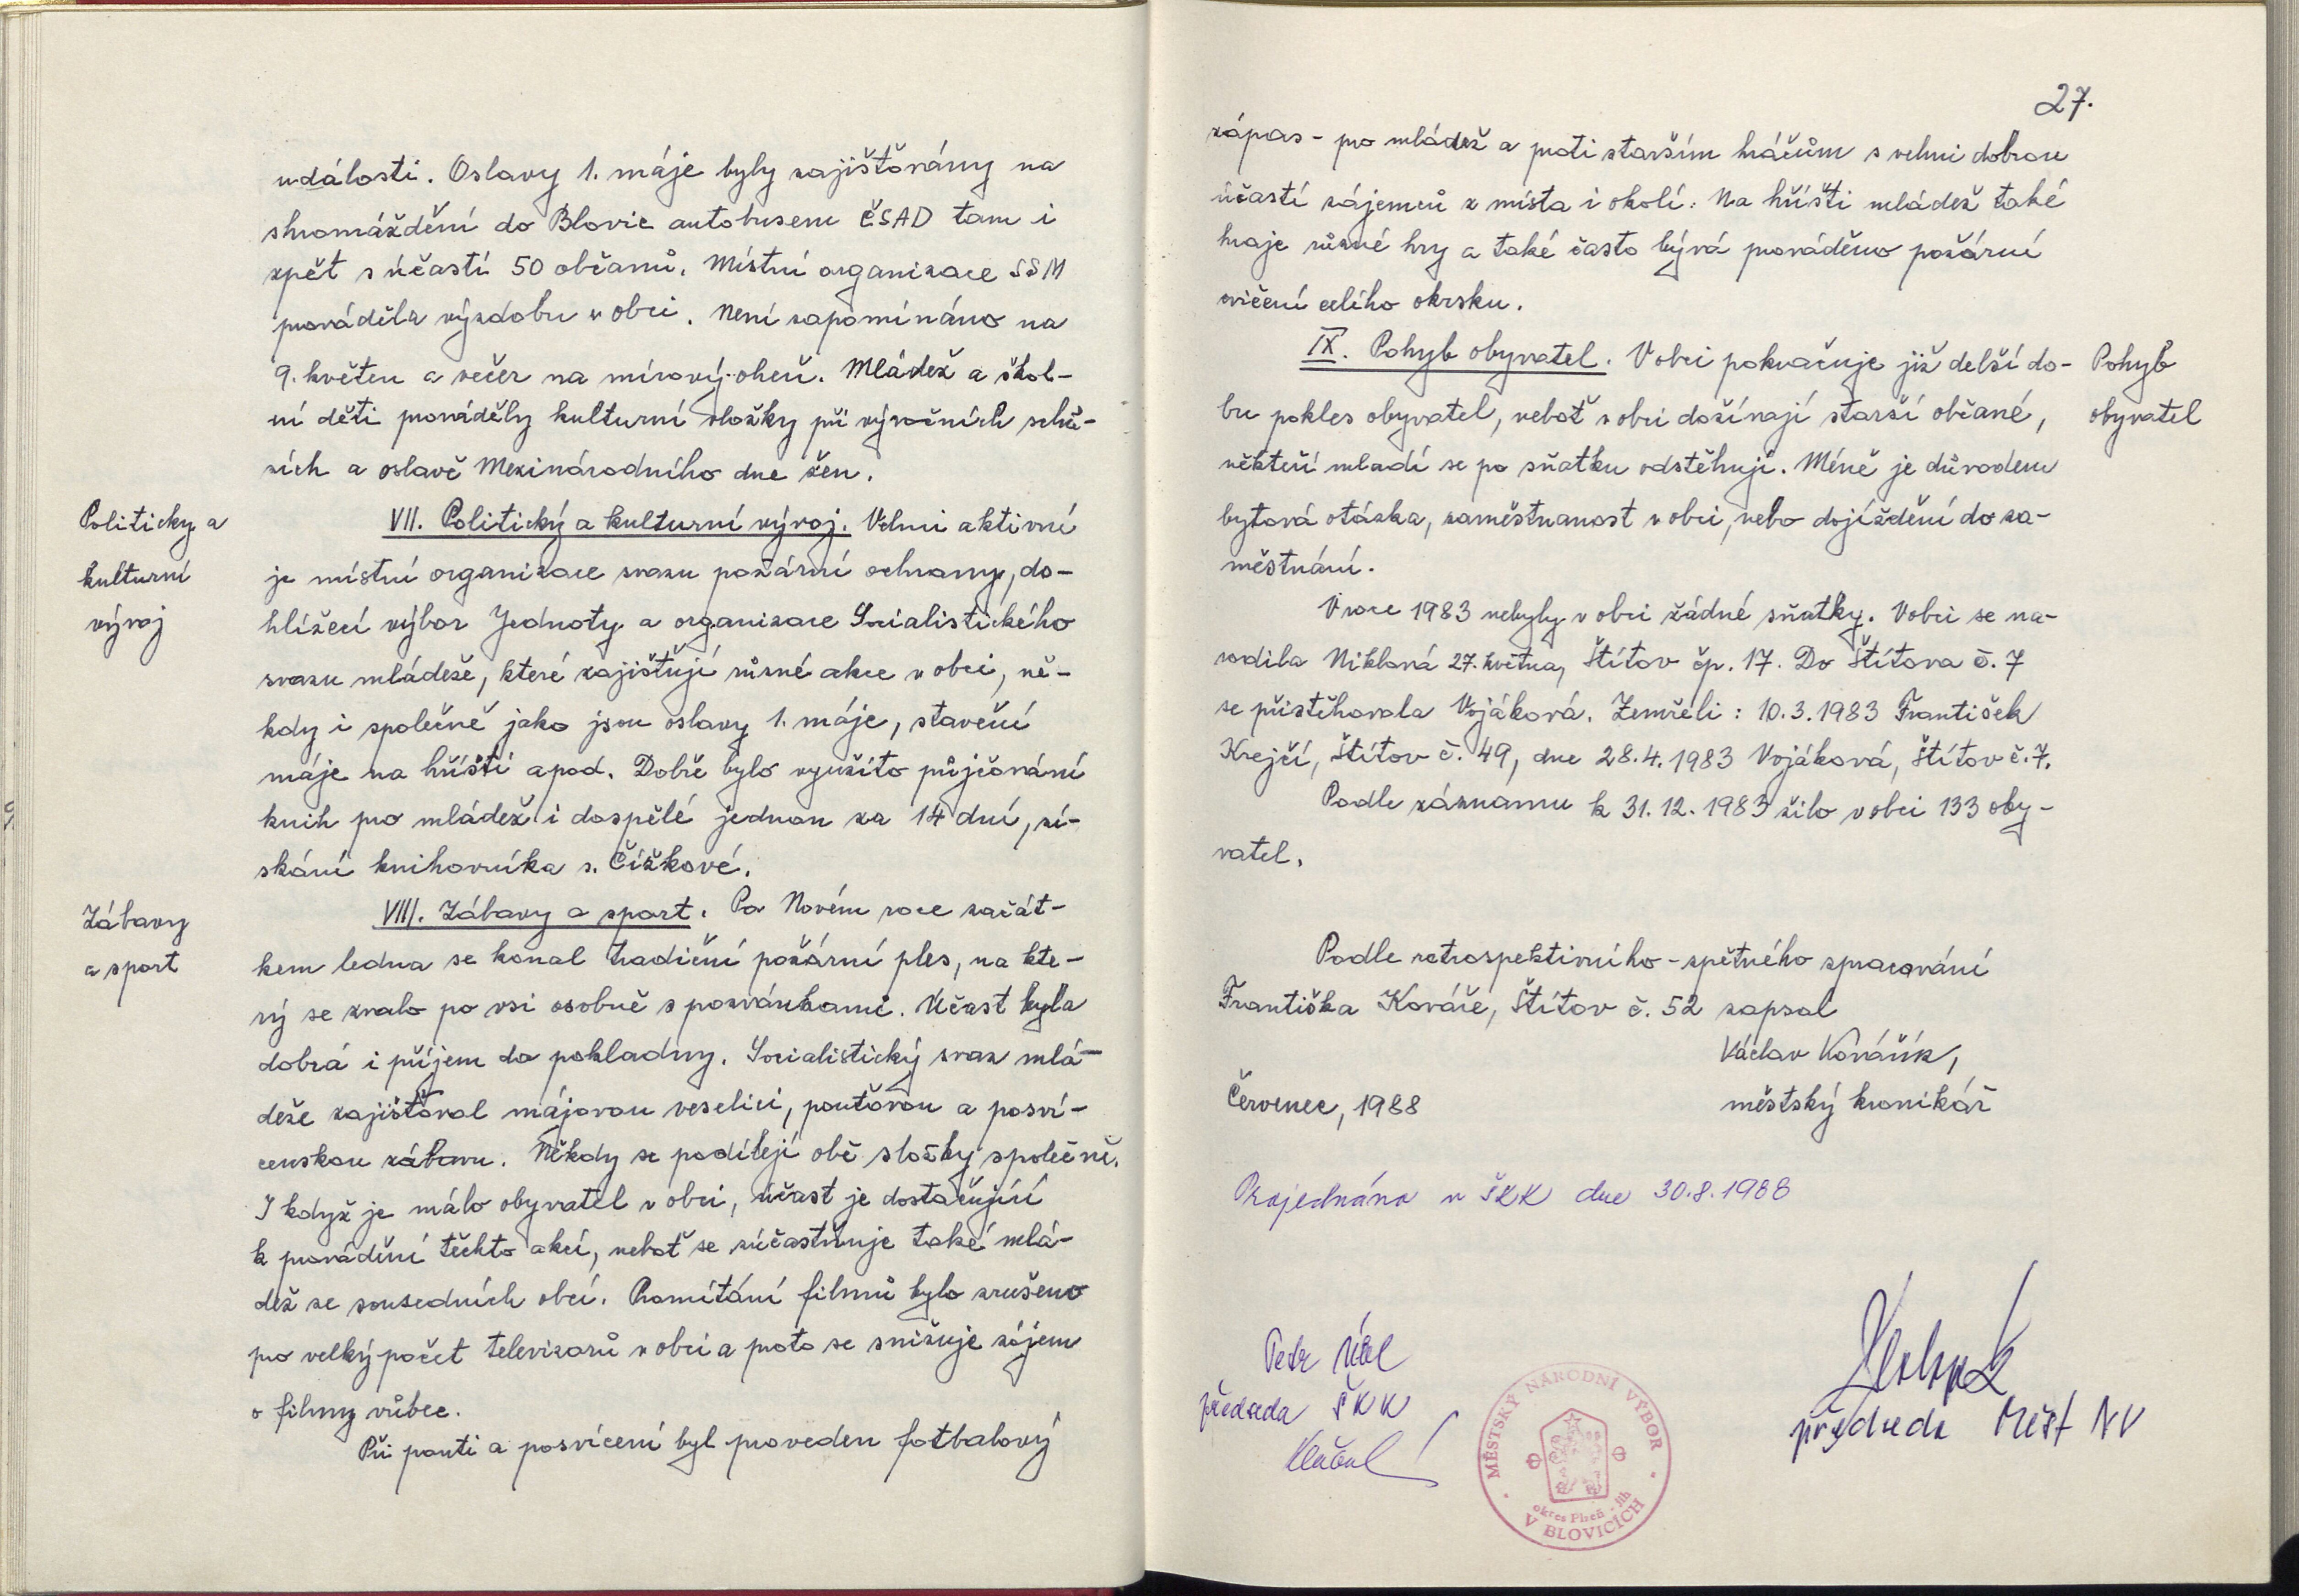 události. Oslavy 1. máje byly zajišťovány na
shromáždění do Blovic autobusem ČSAD tam i
zpět s účastí 50 občanů. Místní organizace SSM
prováděla výzdobu v obci. Není zapomínáno na
9. květen a večer na mírový oheň. Mládež a škol-
ní děti prováděly kulturní vložky při výročních schů-
zích a oslavě Mezinárodního dne žen.
Politický a
kulturní
vývoj
VII. Politický a kulturní vývoj. Velmi aktivní
je místní organizace svazu požární ochrany, do-
hlížecí výbor Jednoty a organizace Socialistického
svazu mládeže, které zajišťují různé akce v obci, ně-
kdy i společně jako jsou oslavy 1. máje, stavění
máje na hřišti apod. Dobře bylo využito půjčování
knih pro mládež i dospělé jednou za 14 dní, zí-
skání knihovníka s. Čížkové.
Zábavy
a sport
VIII. Zábavy a sport. Po Novém roce začát-
kem ledna se konal tradiční požární ples, na kte-
rý se zvalo po vsi osobně s pozvánkami. Účast byla
dobrá i příjem do pokladny. Socialistický svaz mlá-
deže zajišťoval májovou veselici, pouťovou a posví-
censkou zábavu. Někdy se podílejí obě složky společně.
I když je málo obyvatel v obci, účast je dostačující
k provádění těchto akcí, neboť se zúčastňuje také mlá-
dež ze sousedních obcí. Promítání filmů bylo zrušeno
pro velký počet televizorů v obci a proto se snižuje zájem
o filmy vůbec.
Při pouti a posvícení byl proveden fotbalový
27.
zápas - pro mládež a proti starším hráčům s velmi dobrou
účastí zájemců z místa i okolí. Na hřišti mládež také
hraje různé hry a také často bývá prováděno požární
cvičení celého okrsku.
IX. Pohyb obyvatel. V obci pokračuje již delší do-
bu pokles obyvatel, neboť v obci dožívají starší občané,
někteří mladí se po sňatku odstěhují. Méně je důvodem
bytová otázka, zaměstnanost v obci, nebo dojíždění do za-
městnání.
Pohyb
obyvatel
V roce 1983 nebyly v obci žádné sňatky. V obci se na-
rodila Niklová 27. května, Štítov čp. 17. Do Štítova č. 7
se přistěhovala Vojáková. Zemřeli: 10.3.1983 František
Krejčí, Štítov č. 49, dne 28.4.1983 Vojáková, Štítov č. 7.
Podle záznamu k 31.12.1983 žilo v obci 133 oby-
vatel.
Podle retrospektivního - zpětného zpracování
Františka Kováře, Štítov č. 52 zapsal
Václav Kovářík,
městský kronikář
Červenec, 1988
Projednáno v ŠKK dne 30.8.1988
Petr
předseda ŠKK
předseda Měst NV
MĚSTSKÝ NÁRODNÍ VÝBOR
okres Plzeň - jih
V BLOVICÍCH